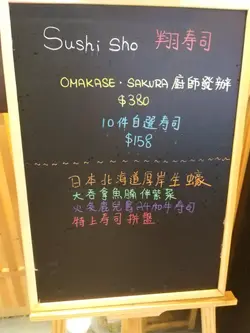 Sushi Sho 翔寿司
OMAKASE · SAKURA 廚師發辦
$380
10件自選寿司
$158
日本北海道厚岸生蠔
大吞拿魚腩伴紫菜
火炙鹿兒島A4和牛寿司
特上寿司拼盤